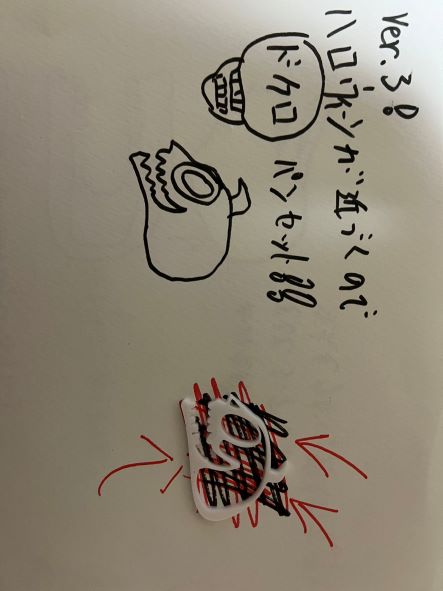 Ver.3!
ハロウィンが近づくので
ドクロパンセット!!